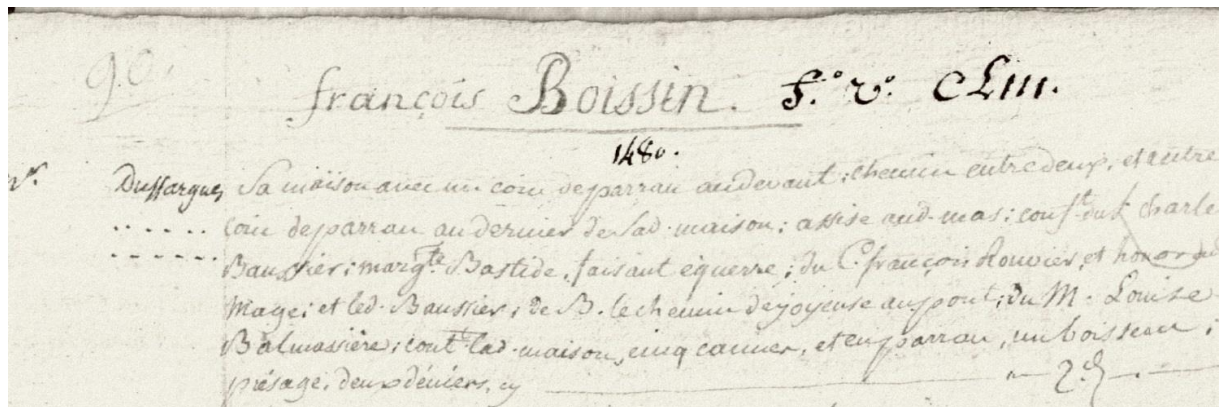 90.
françois Boissin. f.° v.° CLIII.
1480.
Dussargues Sa maison avec un coin de parran au devant; chemin entre deux, et autre
coin de parran au dernier de lad. maison; assise aud. mas; conf.t du L charle
Baussier; marg.te Bastide, faisant équerre; du C. françois Rouvier, et honoré
Mage; et led. Baussier; de B. le chemin de joyeuse au pont; du M. Louise
Balmassière; cont.t lad. maison, cinq cannes, et en parran, un boisseau;
présage, deux déniers, cy 2.d